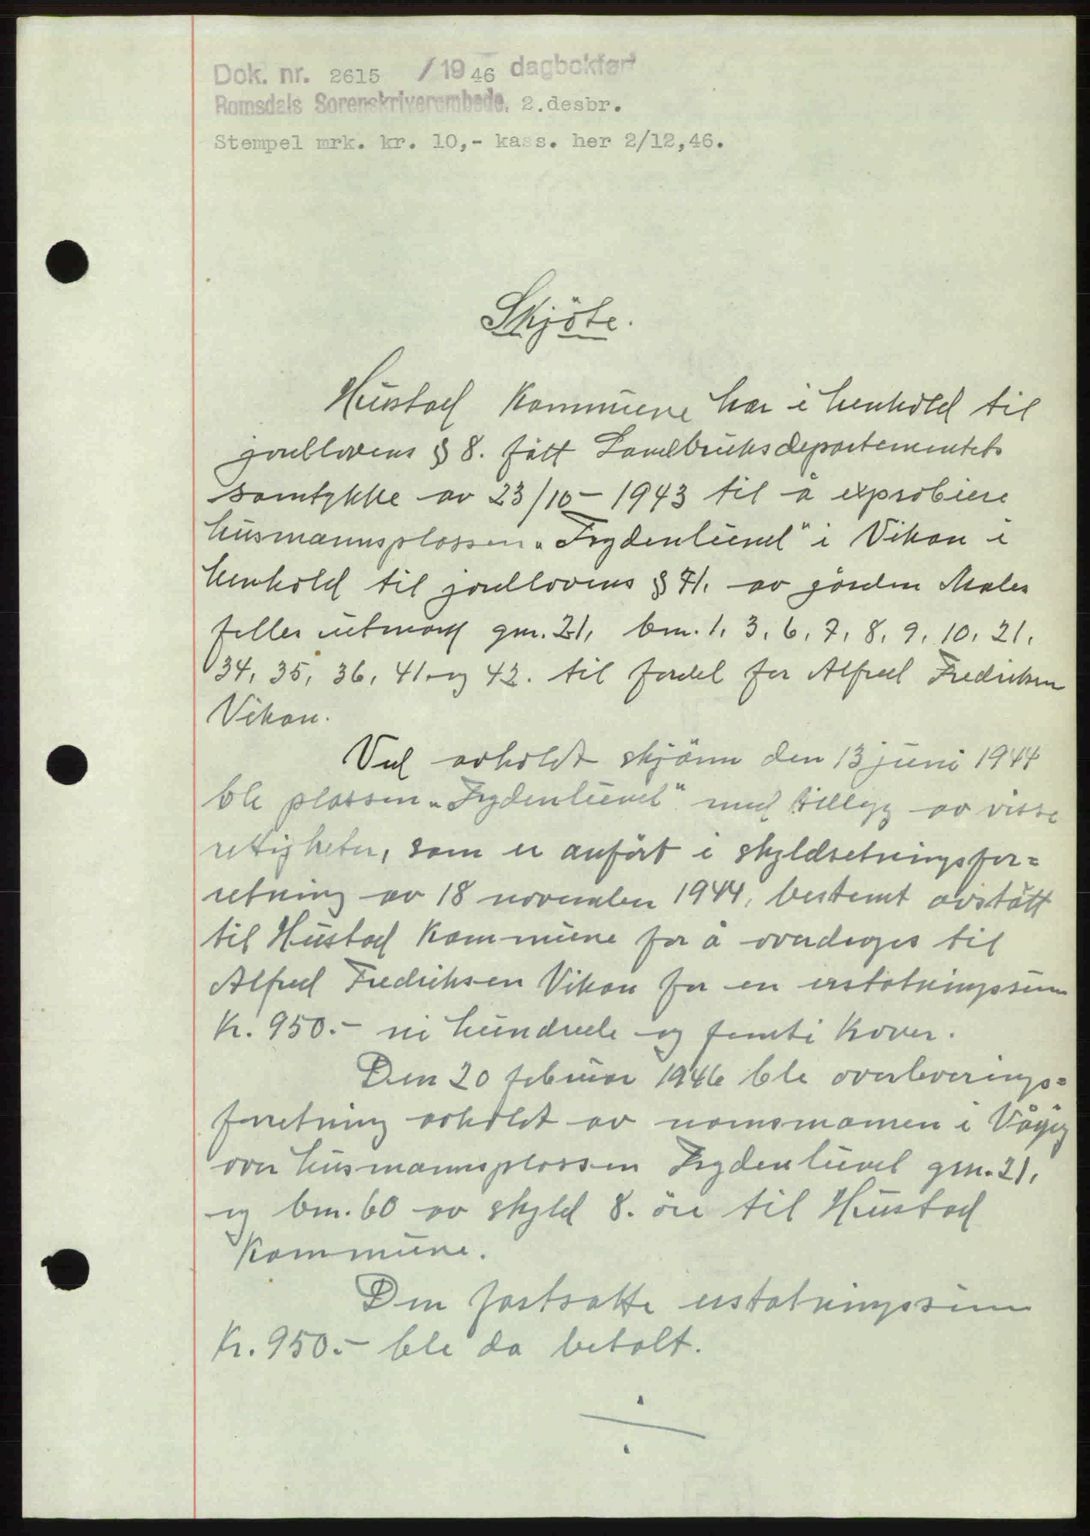 Dok. nr. 2615 /19 46 dagbokført
Romsdals Sorenskriverembede, 2.desbr.
Stempel mrk. kr. 10,- kass. her 2/12,46.
Skjöte.
Hustad Kommune har i henhold til
jordlovens § 8. fått Landbruksdepartementets
samtykke av 23/10-1943 til å exprobiere
husmannsplassen „Frydenlund" i Vikan i
henhold til jordlovens § 71. av gården Males
felles utmark gm. 21, bm. 1, 3, 6, 7, 8, 9, 10, 21,
34, 35, 36, 41 og 42. til fordel for Alfred Fredriksen
Vikan.
Ved avholdt skjönn den 13 juni 1944
ble plassen „Frydenlund" med tillegg av visse
rettigheter, som er anfört i skyldsetningsfor=
retning av 18 november 1944, bestemt avstått
til Hustad Kommune for å overdrages til
Alfred Fredriksen Vikan for en erstatningssum
Kr. 950.- ni hundrede og femti Kroner.
Den 20 februar 1946 ble overleverings=
forretning avholdt av namsmannen i Vågöy
over husmannsplassen Frydenlund gm. 21,
og bm. 60 av skyld 8. öre til Hustad
Kommune.
Den fastsatte erstatningssum
Kr. 950.- ble da betalt.